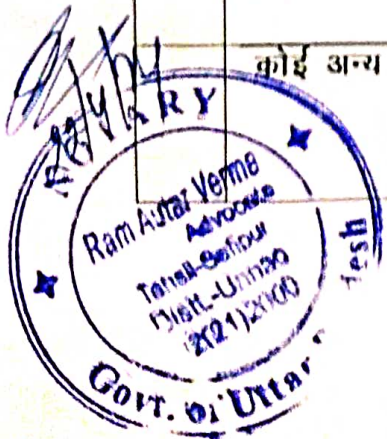 कोई अन्य
NOTARY
Ram Autar Verme
Advocate
Tehsil-Safipur
Distt.-Unnao
2(21)2000
Govt. of Uttar
desh